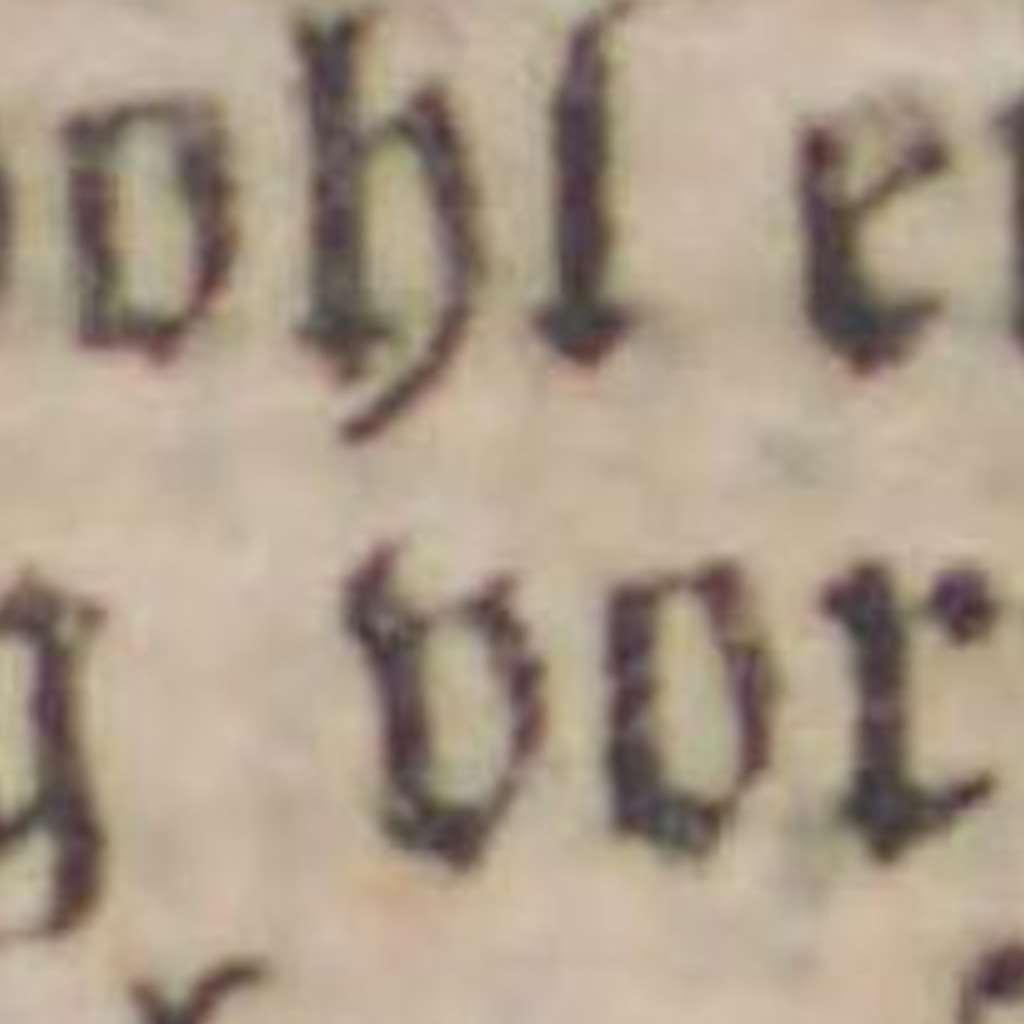 ohl e
g vor